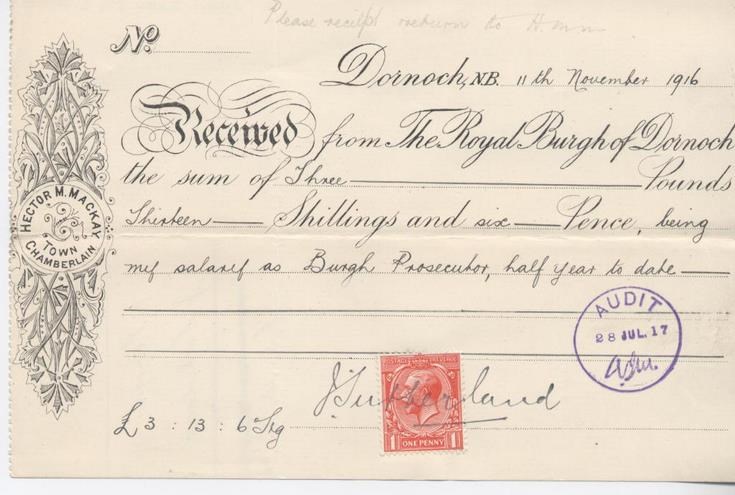 Please receipt & return to H.M.M.
No.
Dornoch, N.B. 11th November 1916
Received from The Royal Burgh of Dornoch
the sum of Three Pounds
Thirteen Shillings and six Pence, being
my salary as Burgh Prosecutor, half year to date
HECTOR M. MACKAY
TOWN
CHAMBERLAIN
AUDIT
28 JUL. 17
J Sutherland
POSTAGE REVENUE
1 ONE PENNY 1
£3 : 13 : 6 Stg